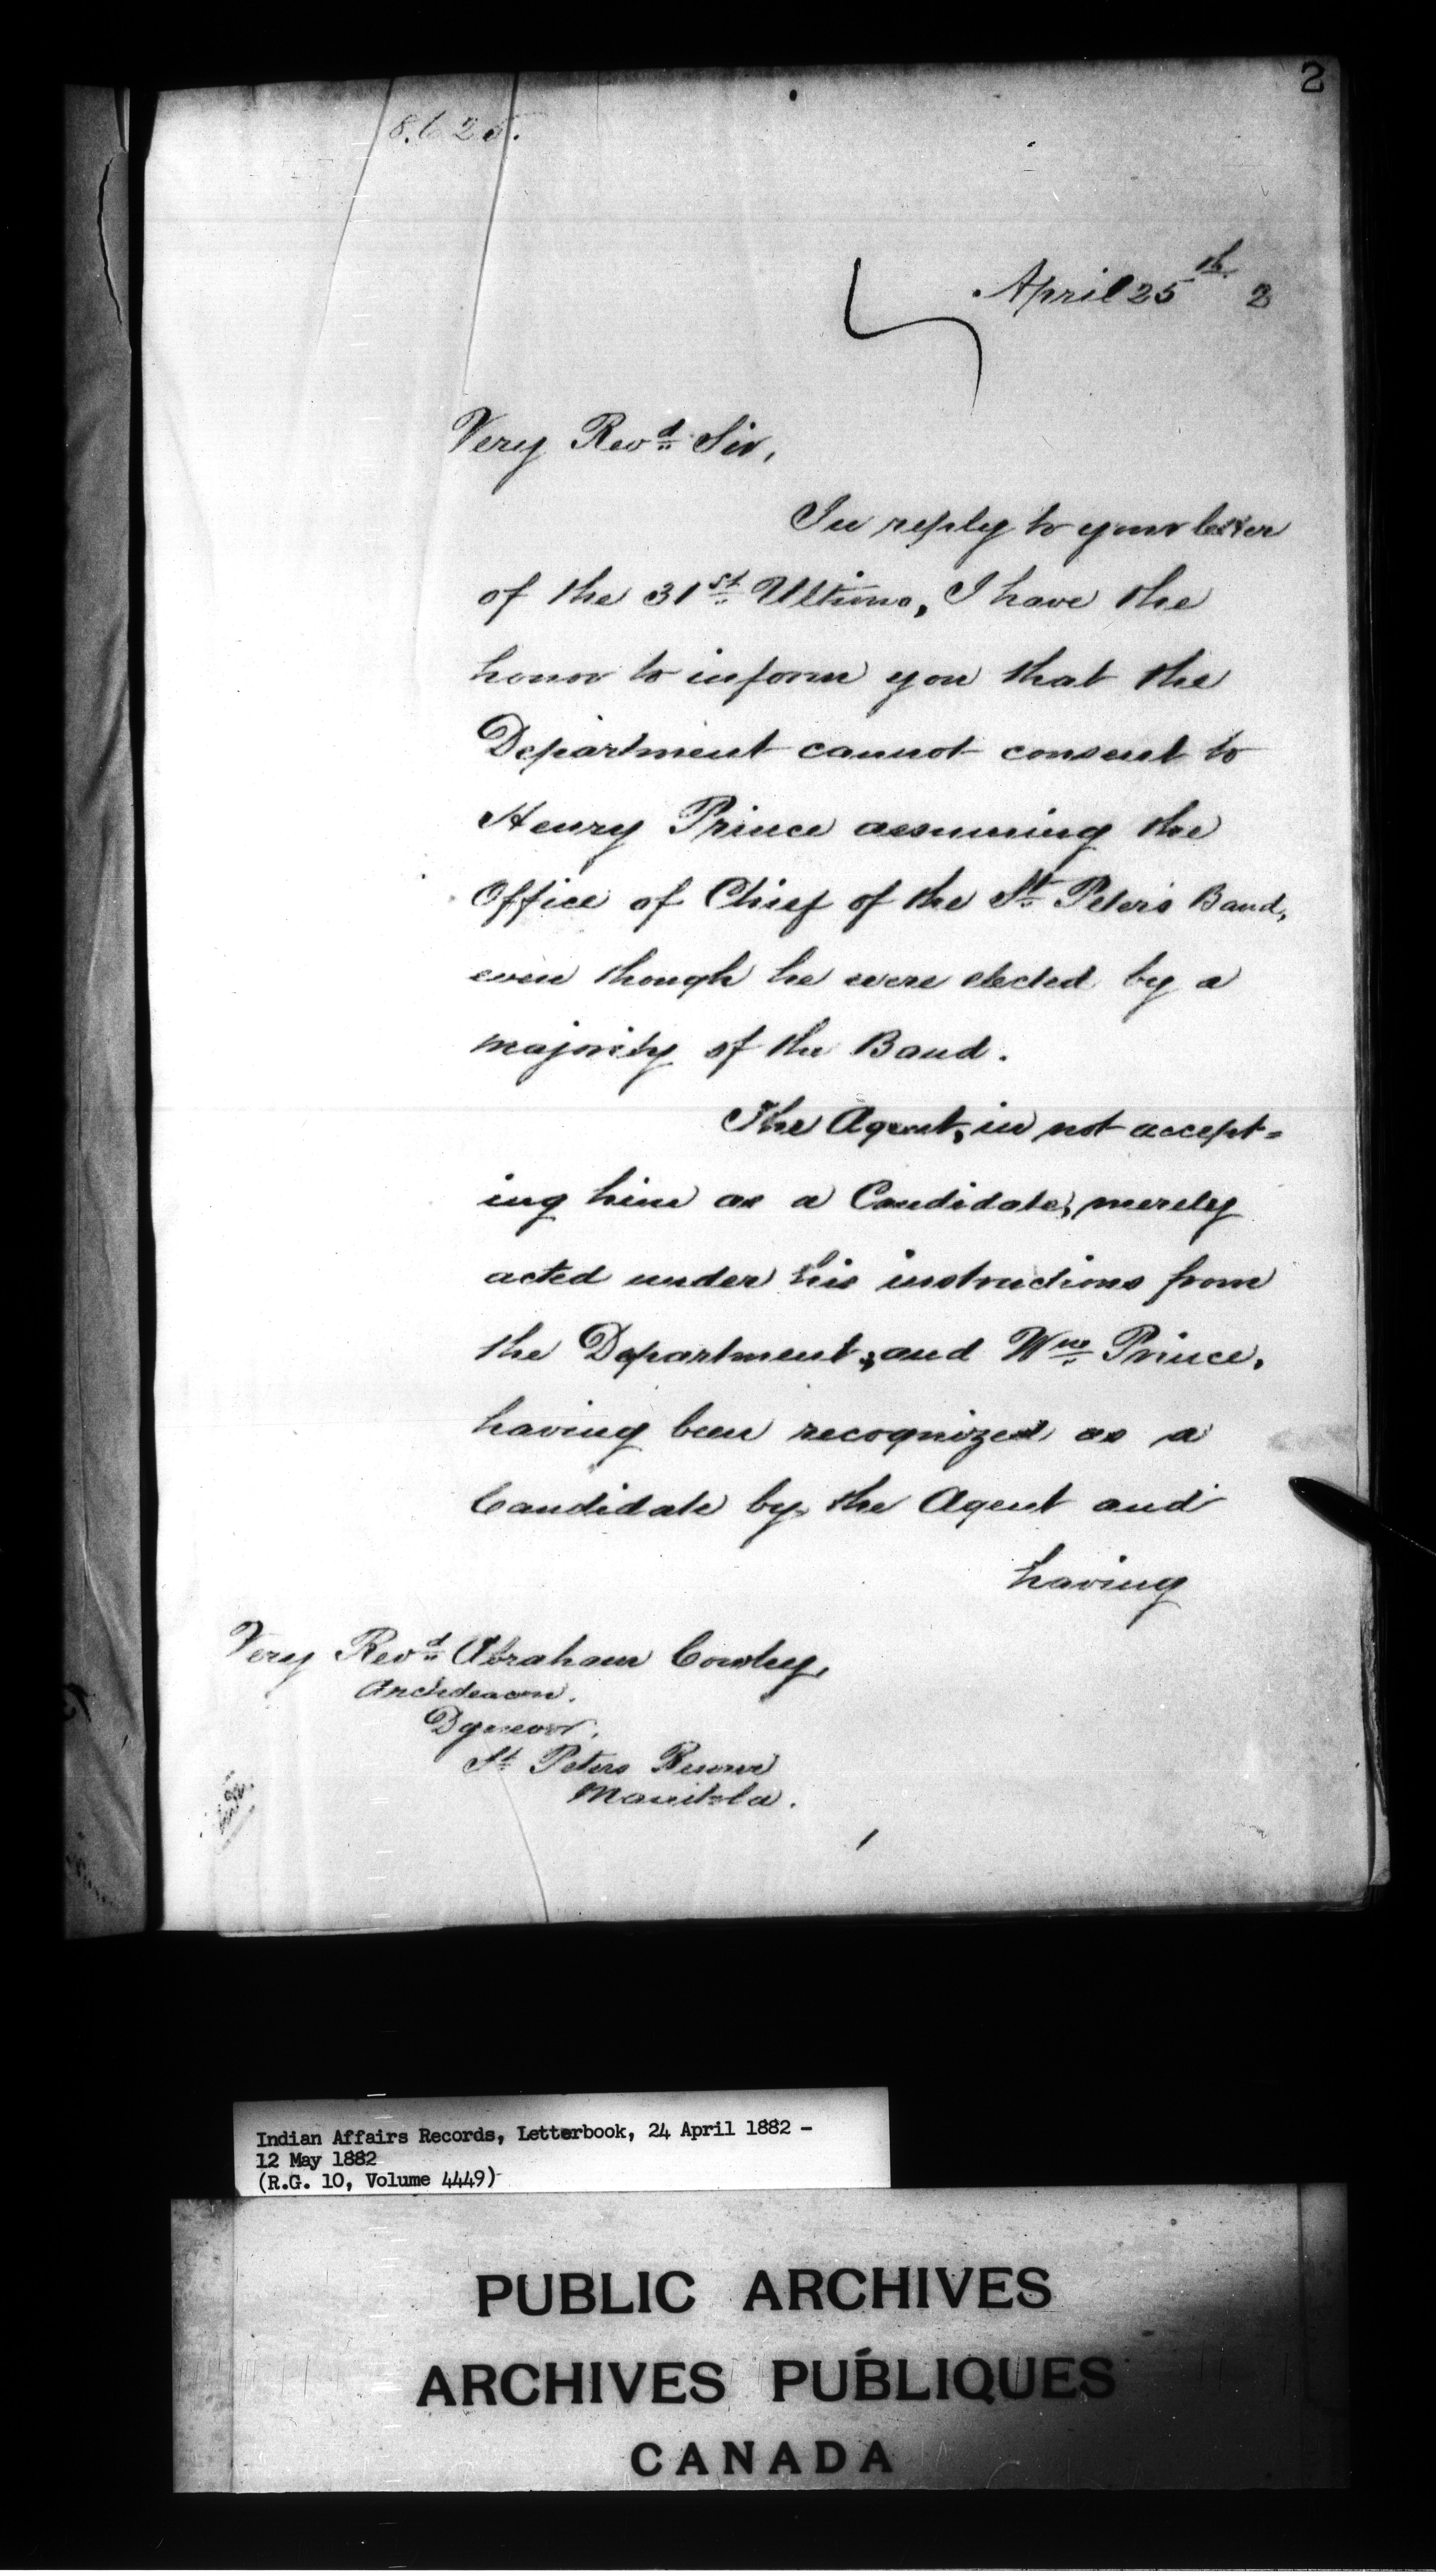 2
8.625.
April 25th 2
Very Revd Sir,
In reply to your letter
of the 31st Ultimo, I have the
honor to inform you that the
Department cannot consent to
Henry Prince assuming the
Office of Chief of the St Peter's Band,
even though he were elected by a
majority of the Band.
The Agent, in not accept=
ing him as a Candidate, merely
acted under his instructions from
the Department; and Wm Prince,
having been recognized as a
Candidate by the Agent and
having
Very Revd Abraham Cowley,
Archdeacon.
Dynevor,
St Peters Reserve
Manitoba.
Indian Affairs Records, Letterbook, 24 April 1882 -
12 May 1882
(R.G. 10, Volume 4449)
PUBLIC ARCHIVES
ARCHIVES PUBLIQUES
CANADA